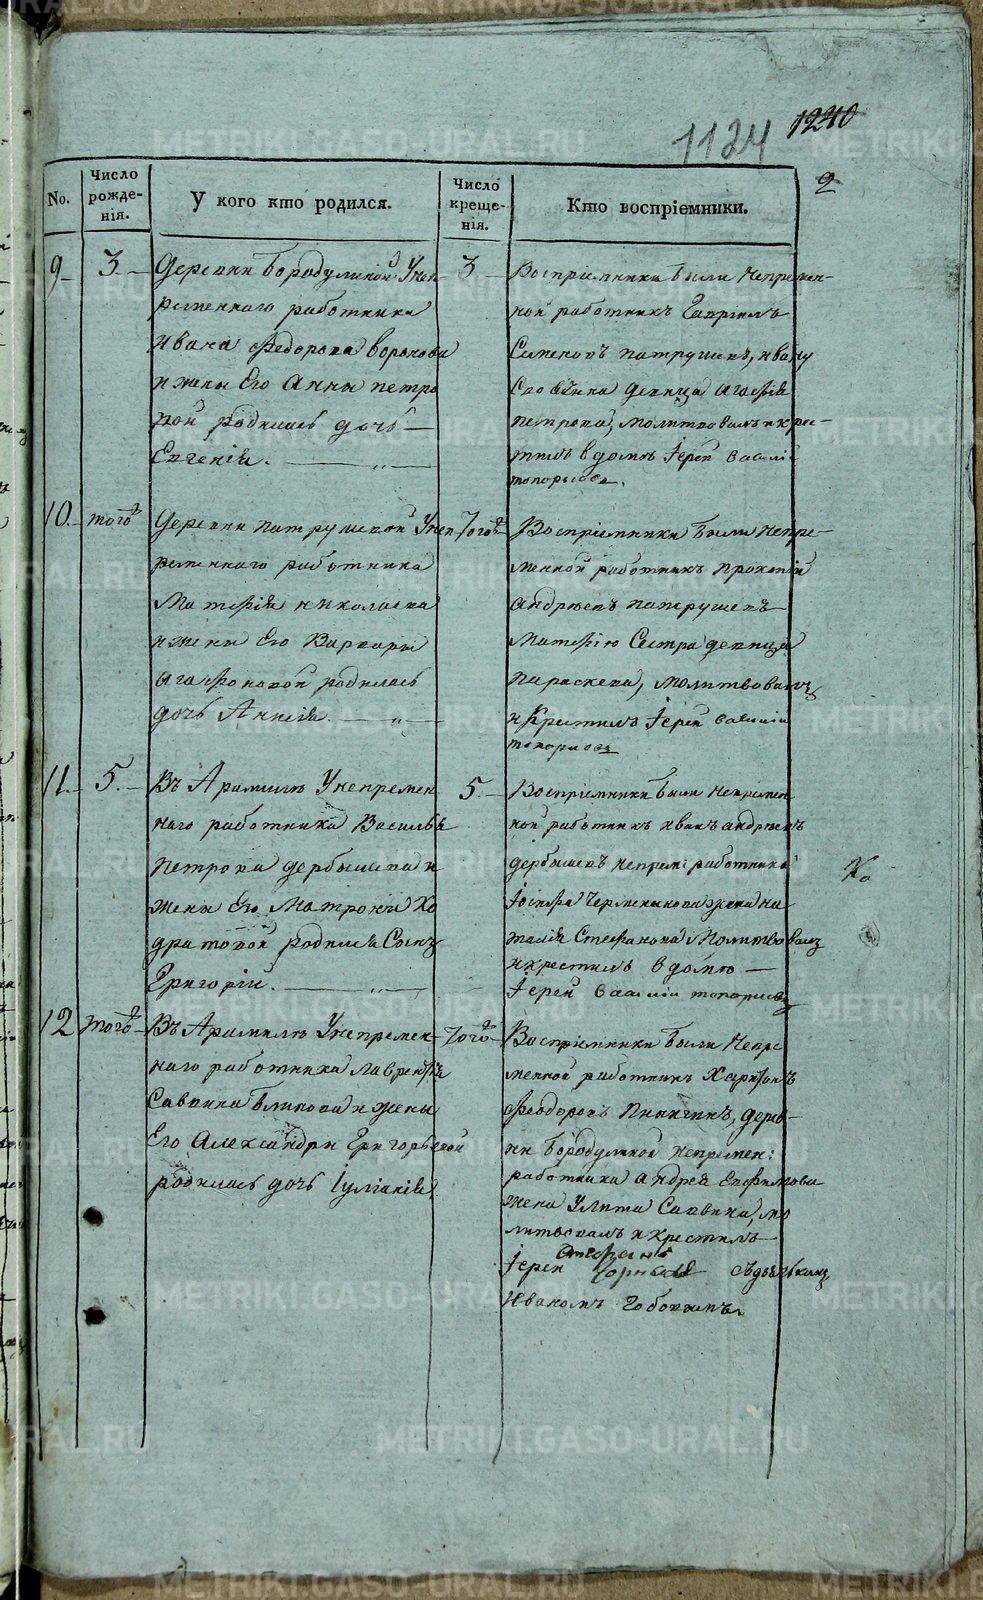 1240
1124
2
No.
Число рожденія.
У кого кто родился.
Число крещенія.
Кто воспріемники.
9 3
Деревни Бородулиной Унеп-
ременнаго работника
Ивана Федорова Воронова
и жены Его Анны петро
вой родилась дочь
Евгенія.
3
Воспріемники были Непремен-
ной работникъ Гавріилъ
Семеновъ патрушевъ, ивану
девица агафія
петрова, молитвовалъ и крес-
тилъ в домѣ Іерей василій
топорковъ.
10. того
Деревни патрушевой Унеп
ременнаго работника
Матфія николаева
и жены Его Варвары
агафоновой родилась
дочь Аннсія.
Того
Воспріемники были Непре-
менной работникъ прокопій
андрѣевъ патрушевъ
Матфію Сестра девица
параскева, молитвовалъ
и Крестилъ Іерей василій
топорковъ
11. 5.
Въ Арамилѣ Унепремен
наго работника Василья
петрова дербышева и
жены Его Матроны Ко
дратовой родился Сынъ
Григорій.
5.
Воспріемники были непремен
ной работникъ иванъ андрѣевъ
дербышевъ непрем: работника
Іосифа Черменинова жена на
талія Стефанова Молитвовалъ
и крестилъ в домѣ
Іерей василій топорковъ
12 того
Въ Арамилѣ Унепремен
наго работника лаврентья
Саввина блинова и жены
Его Александры Григорьевой
родилась дочь Іуліанія.
Того
Воспріемники были Непре
менной работникъ Харитонъ
Феодоровъ пиннгинъ, дерев-
ни Бородулиной непремен:
работника андрея Евфимова
жена Улита Саввина, мо
литвовалъ и крестилъ
Іерей Стефанъ съдьячкомъ
Иваномъ
METRIKI.GASO-URAL.RU